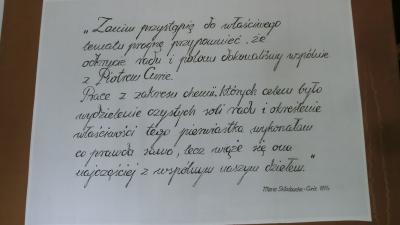 „Zanim przystąpię do właściwego
tematu pragnę przypomnieć, że
odkrycie radu i polonu dokonaliśmy wspólnie
z Piotrem Curie.
Prace z zakresu chemii, których celem było
wydzielenie czystych soli radu i określenie
właściwości tego pierwiastka, wykonałam
co prawda sama, lecz wiąże się ona
najczęściej z wspólnym naszym dziełem."
Maria Skłodowska-Curie